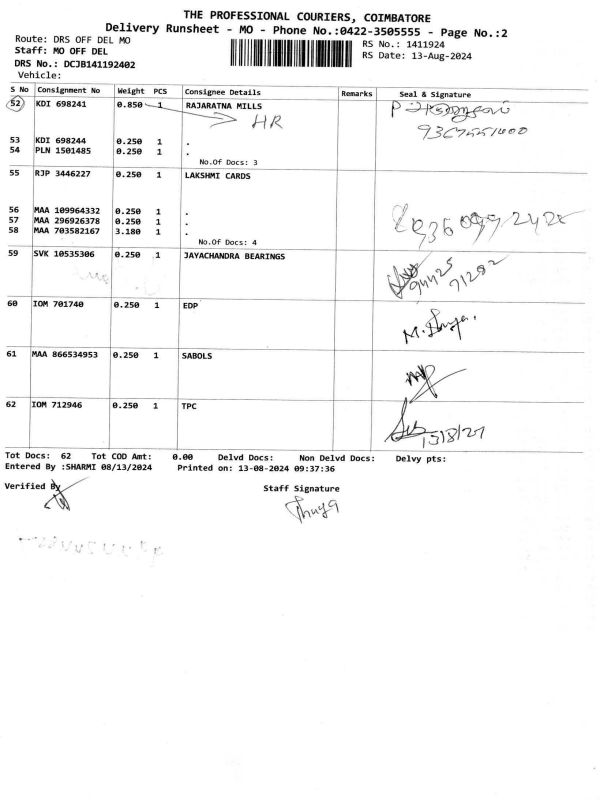 THE PROFESSIONAL COURIERS, COIMBATORE
Delivery Runsheet - MO - Phone No.:0422-3505555 - Page No.:2
Route: DRS OFF DEL MO
RS No.: 1411924
Staff: MO OFF DEL
RS Date: 13-Aug-2024
DRS No.: DCJB141192402
Vehicle:
S No Consignment No Weight PCS Consignee Details Remarks Seal & Signature
52 KDI 698241 0.850 1 RAJARATNA MILLS
HR
53 KDI 698244 0.250 1 .
54 PLN 1501485 0.250 1 .
No.Of Docs: 3
55 RJP 3446227 0.250 1 LAKSHMI CARDS
56 MAA 109964332 0.250 1 .
57 MAA 296926378 0.250 1 .
58 MAA 703582167 3.180 1 .
No.Of Docs: 4
59 SVK 10535306 0.250 1 JAYACHANDRA BEARINGS
60 IOM 701740 0.250 1 EDP
61 MAA 866534953 0.250 1 SABOLS
62 IOM 712946 0.250 1 TPC
Tot Docs: 62 Tot COD Amt: 0.00 Delvd Docs: Non Delvd Docs: Delvy pts:
Entered By :SHARMI 08/13/2024 Printed on: 13-08-2024 09:37:36
Verified By
Staff Signature